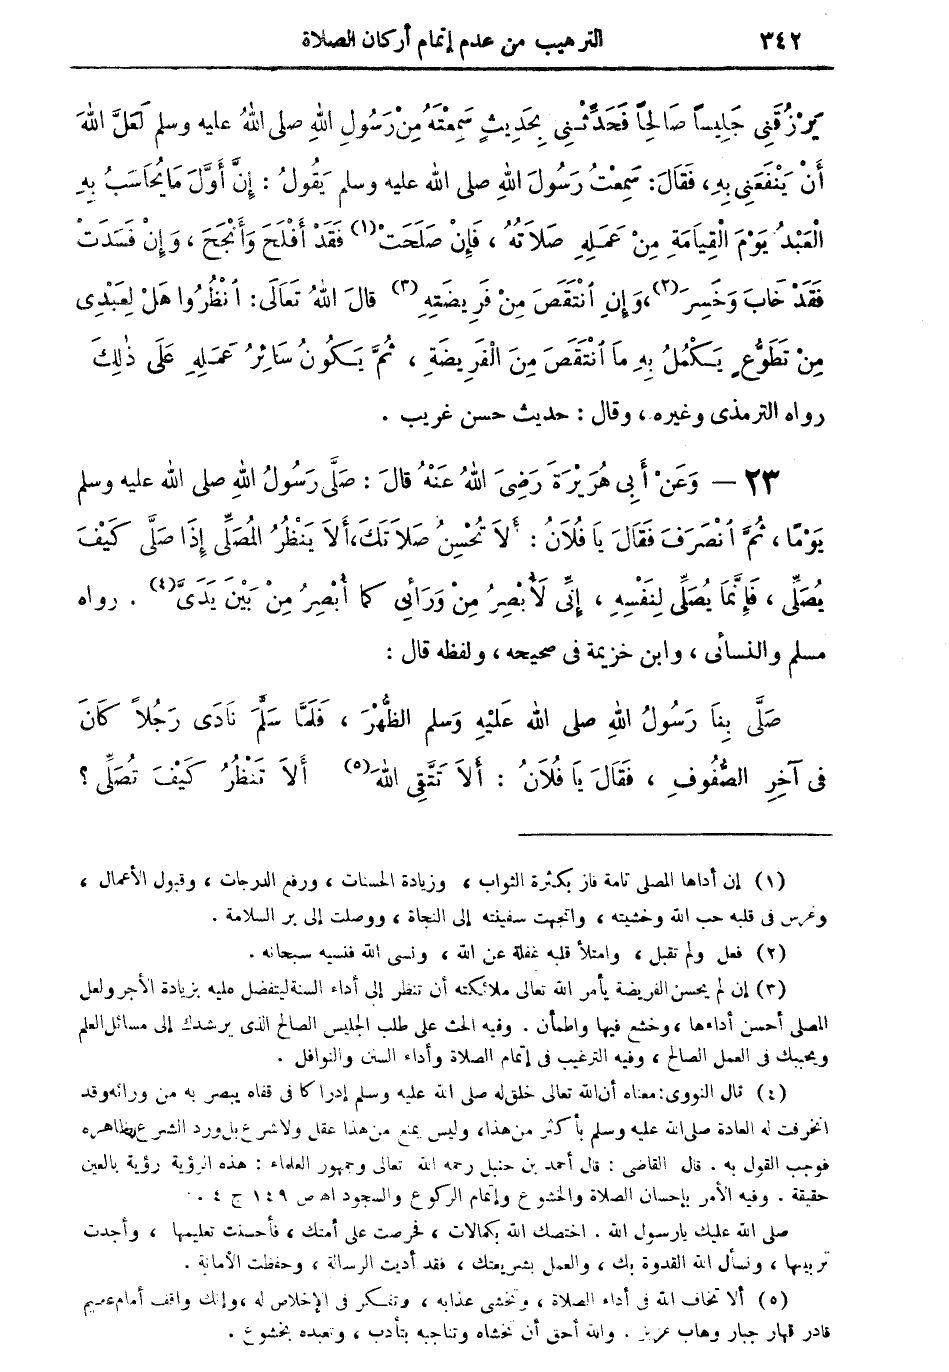 ٣٤٢ الترهيب من عدم إتمام أركان الصلاة
يَرْزُقَنِى جَلِيساً صَالِحاً فَحَدِّثْنِى بِحَدِيثٍ سَمِعْتَهُ مِنْ رَسُولِ اللهِ صلى اللهُ عليه وسلم لَعَلَّ اللهَ
أَنْ يَنْفَعَنِى بِهِ، فَقَالَ: سَمِعْتُ رَسُولَ اللهِ صلى الله عليه وسلم يَقُولُ: إِنَّ أَوَّلَ مَا يُحَاسَبُ بِهِ
الْعَبْدُ يَوْمَ الْقِيَامَةِ مِنْ عَمَلِهِ صَلَاتُهُ، فَإِنْ صَلَحَتْ (١) فَقَدْ أَفْلَحَ وَأَنْجَحَ، وَإِنْ فَسَدَتْ
فَقَدْ خَابَ وَخَسِرَ (٢)، وَإِنِ ٱنْتَقَصَ مِنْ فَرِيضَتِهِ (٣) قَالَ اللهُ تَعَالَى: ٱنْظُرُوا هَلْ لِعَبْدِى
مِنْ تَطَوُّعٍ يَكْمُلُ بِهِ مَا ٱنْتَقَصَ مِنَ الْفَرِيضَةِ، ثُمَّ يَكُونُ سَائِرُ عَمَلِهِ عَلَى ذٰلِكَ
رواه الترمذى وغيره، وقال: حديث حسن غريب.
٢٣ — وَعَنْ أَبِى هُرَيْرَةَ رَضِىَ اللهُ عَنْهُ قَالَ: صَلَّى رَسُولُ اللهِ صلى الله عليه وسلم
يَوْمًا، ثُمَّ ٱنْصَرَفَ فَقَالَ يَا فُلَانُ: أَلَا تُحْسِنُ صَلَاتَكَ، أَلَا يَنْظُرُ الْمُصَلِّى إِذَا صَلَّى كَيْفَ
يُصَلِّى، فَإِنَّمَا يُصَلِّى لِنَفْسِهِ، إِنِّى لَأُبْصِرُ مِنْ وَرَائِى كَمَا أُبْصِرُ مِنْ بَيْنِ يَدَىَّ (٤). رواه
مسلم والنسائى، وابن خزيمة فى صحيحه، ولفظه قال:
صَلَّى بِنَا رَسُولُ اللهِ صلى الله عَلَيْهِ وَسلم الظُّهْرَ، فَلَمَّا سَلَّمَ نَادَى رَجُلاً كَانَ
فى آخِرِ الصُّفُوفِ، فَقَالَ يَا فُلَانُ: أَلَا تَتَّقِى اللهَ (٥) أَلَا تَنْظُرُ كَيْفَ تُصَلِّى؟
(١) إن أداها المصلى تامة فاز بكثرة الثواب، وزيادة الحسنات، ورفع الدرجات، وقبول الأعمال،
وغرس فى قلبه حب الله وخشيته، واتجهت سفينته إلى النجاة، ووصلت إلى بر السلامة.
(٢) فعل ولم تقبل، وامتلأ قلبه غفلة عن الله، ونسى الله فنسيه سبحانه.
(٣) إن لم يحسن الفريضة يأمر الله تعالى ملائكته أن تنظر إلى أداء السنة ليتفضل عليه بزيادة الأجر ولعل
المصلى أحسن أداءها، وخشع فيها واطمأن. وفيه الحث على طلب الجليس الصالح الذى يرشدك إلى مسائل العلم
ويحببك فى العمل الصالح، وفيه الترغيب فى إتمام الصلاة وأداء السنن والنوافل.
(٤) قال النووى: معناه أن الله تعالى خلق له صلى الله عليه وسلم إدراكا فى قفاه يبصر به من ورائه وقد
انخرقت له العادة صلى الله عليه وسلم بأكثر من هذا، وليس يمنع من هذا عقل ولا شرع بل ورد الشرع بظاهره
فوجب القول به. قال القاضى: قال أحمد بن حنبل رحمه الله تعالى وجمهور العلماء: هذه الرؤية رؤية بالعين
حقيقة. وفيه الأمر بإحسان الصلاة والخشوع وإتمام الركوع والسجود اه ص ١٤٩ ج ٤.
صلى الله عليك يارسول الله. اختصك الله بكمالات، فحرصت على أمتك، فأحسنت تعليمها، وأجدت
تربيتها، ونسأل الله القدوة بك، والعمل بشريعتك، فقد أديت الرسالة، وحفظت الأمانة.
(٥) ألا تخاف الله فى أداء الصلاة، وتخشى عذابه، وتفكر فى الإخلاص له، وإنك واقف أمام عظيم
قادر قهار جبار وهاب عزيز. والله أحق أن تخشاه وتناجيه بتأدب، وتعبده بخشوع.